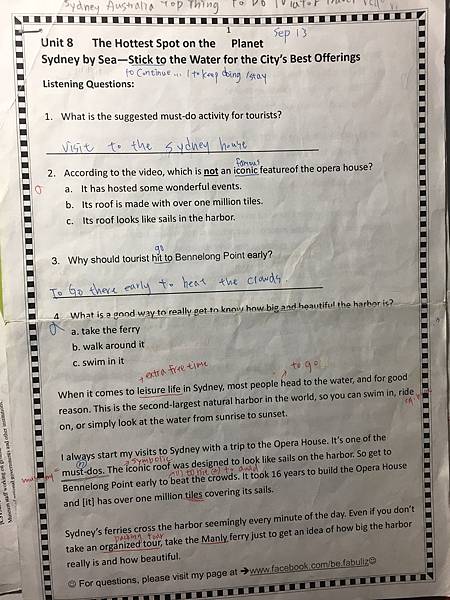 Sydney Australia Top Thing To Do | Viator Travel
1
Sep 13
Unit 8 The Hottest Spot on the Planet
Sydney by Sea—Stick to the Water for the City's Best Offerings
to continue... / to keep doing / stay
Listening Questions:
1. What is the suggested must-do activity for tourists?
Visit to the sydney house
famous
2. According to the video, which is not an iconic featureof the opera house?
a. It has hosted some wonderful events.
b. Its roof is made with over one million tiles.
c. Its roof looks like sails in the harbor.
go
3. Why should tourist hit to Bennelong Point early?
To Go there early to beat the clowds.
4. What is a good way to really get to know how big and beautiful the harbor is?
a. take the ferry
b. walk around it
c. swim in it
extra free time
to go
When it comes to leisure life in Sydney, most people head to the water, and for good
reason. This is the second-largest natural harbor in the world, so you can swim in, ride
on, or simply look at the water from sunrise to sunset.
I always start my visits to Sydney with a trip to the Opera House. It's one of the
(n) symbolic
must-dos. The iconic roof was designed to look like sails on the harbor. So get to
Bennelong Point early to beat the crowds. It took 16 years to build the Opera House
and [it] has over one million tiles covering its sails.
Sydney's ferries cross the harbor seemingly every minute of the day. Even if you don't
tour
take an organized tour, take the Manly ferry just to get an idea of how big the harbor
really is and how beautiful.
☺ For questions, please visit my page at ➔www.facebook.com/be.fabuliz☺